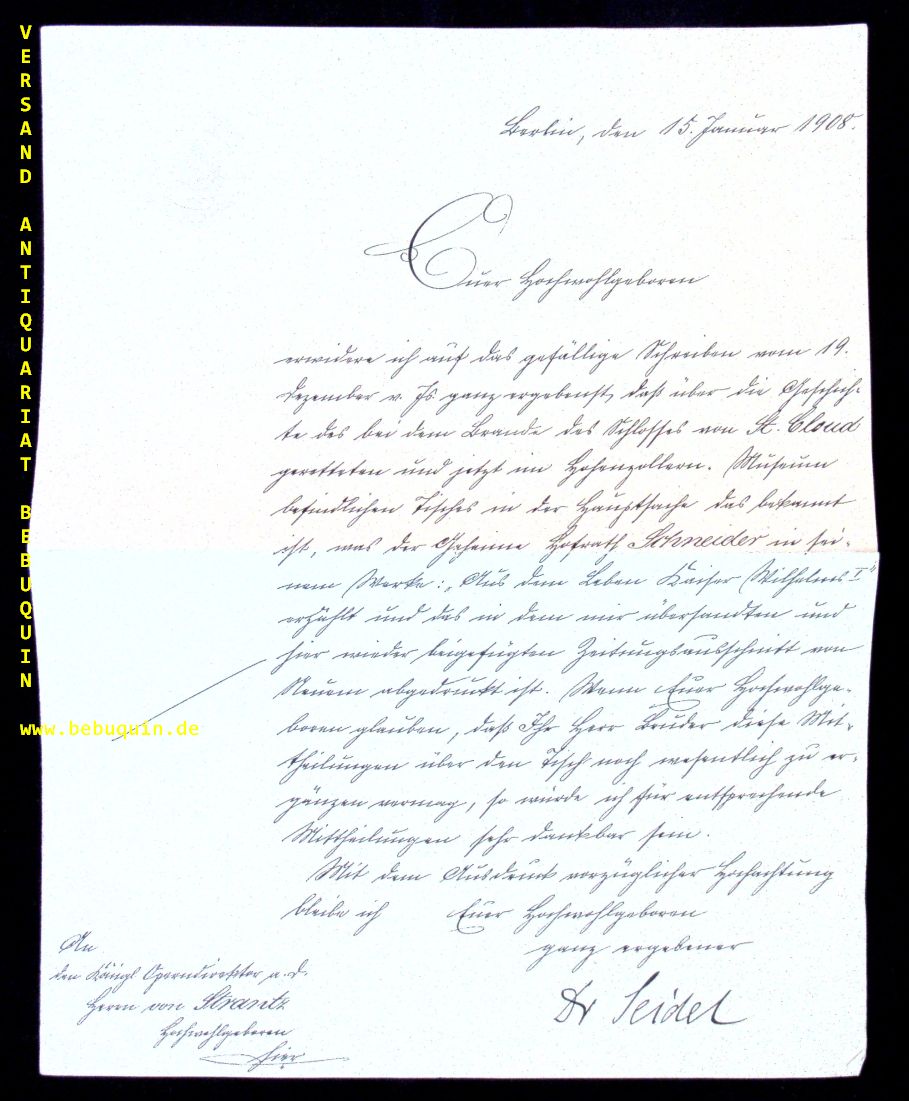 VERSAND ANTIQUARIAT BEBUQUIN
www.bebuquin.de
Berlin, den 15. Januar 1908.
Euer Hochwohlgeboren
erwidere ich auf das gefällige Schreiben vom 19.
Dezember v. Js. ganz ergebenst, daß über die Geschich-
te des bei dem Brande des Schlosses von St. Cloud
geretteten und jetzt im Hohenzollern-Museum
befindlichen Tisches in der Hauptsache das bekannt
ist, was der Geheime Hofrath Schneider in sei-
nem Werke: „Aus dem Leben Kaiser Wilhelms I“
erzählt und das in dem mir übersandten und
hier wieder beigefügten Zeitungsausschnitt von
Neuem abgedruckt ist. Wenn Euer Hochwohlge-
boren glauben, daß Ihr Herr Bruder diese Mit-
theilungen über den Tisch noch wesentlich zu er-
gänzen vermag, so würde ich für entsprechende
Mittheilungen sehr dankbar sein.
Mit dem Ausdruck vorzüglicher Hochachtung
bleibe ich Euer Hochwohlgeboren
ganz ergebener
Dr Seidel
An
den Königl Operndirektor a. D.
Herrn von Strantz
Hochwohlgeboren
hier